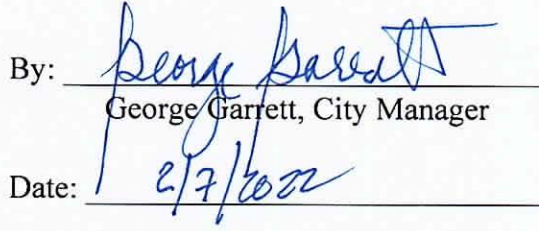 By: George Garrett
George Garrett, City Manager
Date: 2/7/2022